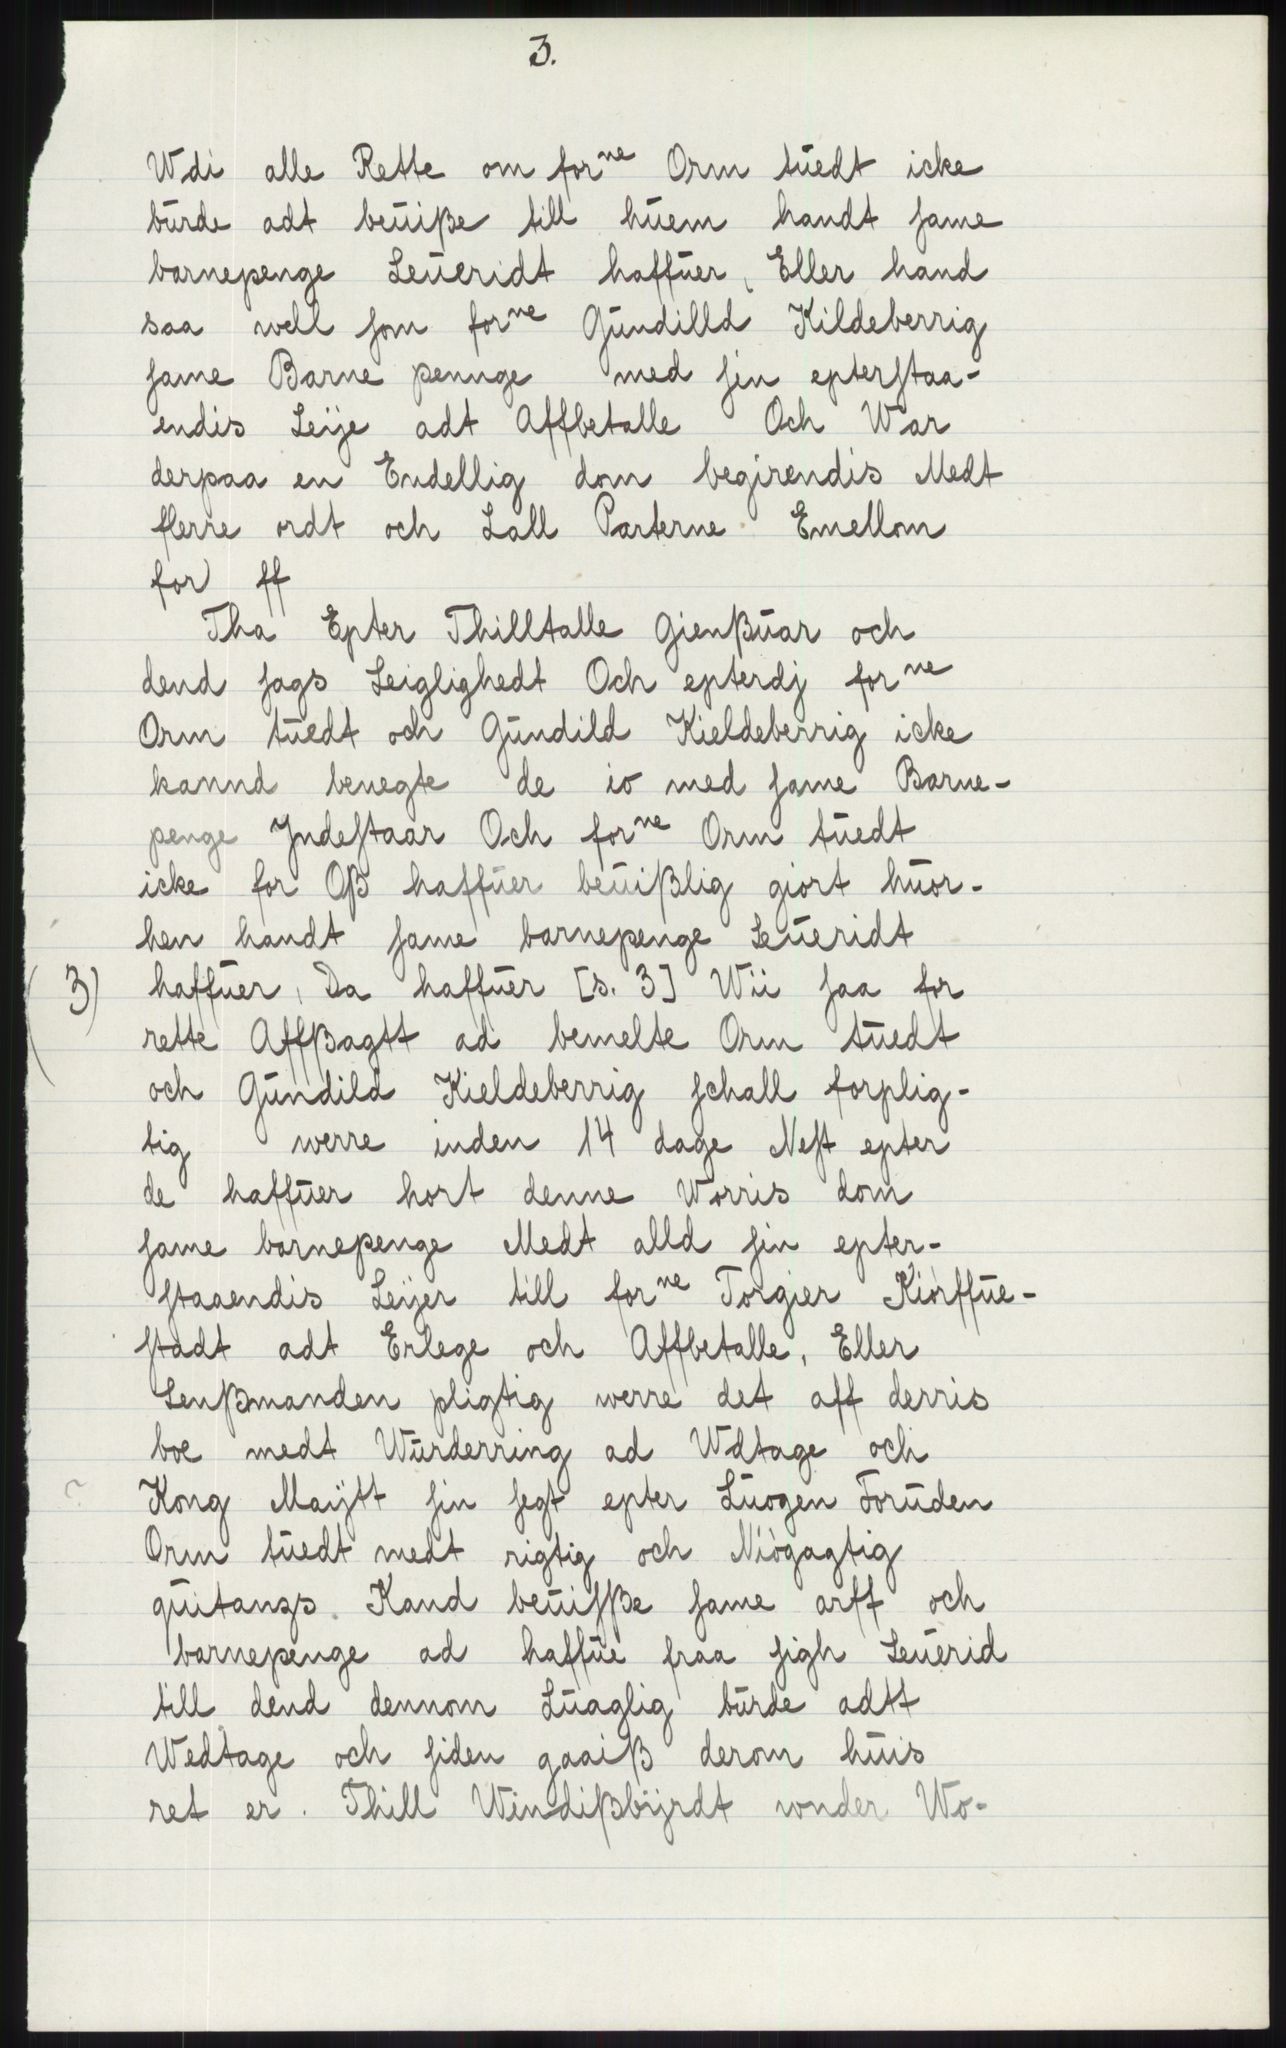 3.
Wdi alle Rette om for<sup>ne</sup> Orm tuedt icke
burde adt beuiße till huem handt same
barnepenge Leueridt haffuer, Eller hand
saa well som for<sup>ne</sup> Gundilld Kildeberrig
same Barne pennge med sin epterstaa-
endis Leije adt Affbetalle Och War
derpaa en Endellig dom begirendis Medt
flerre ordt och Lall Parterne Emellom
for ff
Tha Epter Thilltalle gienßuar och
dend sags Leiglighedt Och epterdj for<sup>ne</sup>
Orm tuedt och Gundild Kieldeberrig icke
kannd benegte de io med same Barne-
penge Jndestaar Och for<sup>ne</sup> Orm tuedt
icke for Oß haffuer beuißlig giort huor-
hen handt same barnepenge Leueridt
3) haffuer, Da haffuer [s. 3] Wii saa for
rette Affßagtt ad bemelte Orm tuedt
och Gundild Kieldeberrig schall forplig-
tig werre inden 14 dage Nest epter
de haffuer hort denne Worris dom
same barnepenge Medt alld sin epter-
staaendis Leijer till for<sup>ne</sup> Torgier Kiörffue-
stadt adt Erlege och Affbetalle, Eller
Lenßmanden pligtig werre det aff derris
boe medt Wurderring ad Wdtage och
? Kong Maijtt sin segt epter Luogen Foruden
Orm tuedt medt rigtig och Niögagtig
quitanzs Kand beuisße same arff och
barnepenge ad haffue fraa sigh Leuerid
till dend dennom Luaglig burde adtt
Wedtage och siden gaaiß derom huis
ret er. Thill Windißbijrdt wnder Wo-